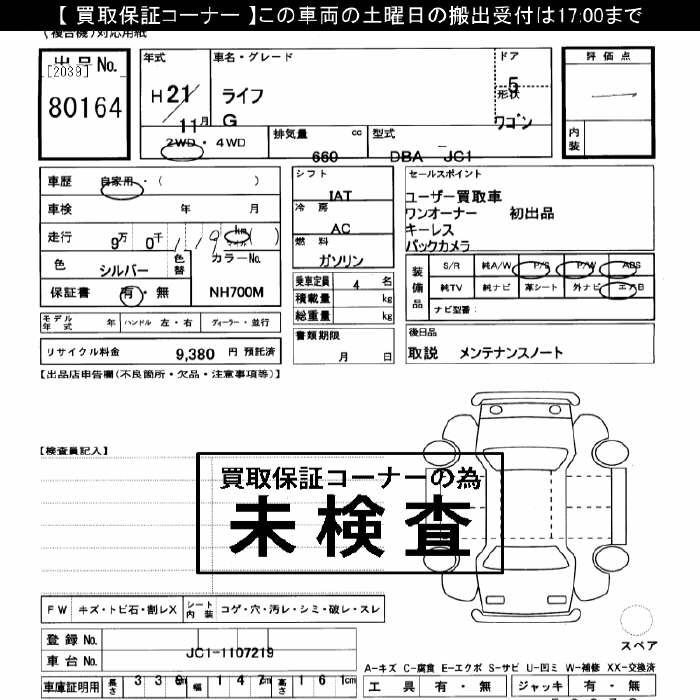 【 買取保証コーナー 】この車両の土曜日の搬出受付は17:00まで
(複合機)対応用紙
出品No.
[2039]
80164
年式
H 21/
11月
車名・グレード
ライフ
G
ドア
5
形状
ワゴン
評価点
内装
2WD ・ 4WD
排気量 cc
660
型式
DBA JC1
車歴 自家用・( )
車検 年 月
走行 9万 0千 119 km ( )
色 シルバー
色替
カラーNo.
NH700M
保証書 有・無
シフト
IAT
冷房
AC
燃料
ガソリン
乗車定員 4 名
積載量 kg
総重量 kg
書類期限
月 日
セールスポイント
ユーザー買取車
ワンオーナー 初出品
キーレス
バックカメラ
装備品
S/R 純A/W P/S P/W ABS
純TV 純ナビ 革シート 外ナビ エアB
ナビ型番:
モデル年式 年 ハンドル 左・右 ディーラー・並行
リサイクル料金 9,380 円 預託済
後日品
取説 メンテナンスノート
【出品店申告欄(不良箇所・欠品・注意事項等)】
【検査員記入】
買取保証コーナーの為
未検査
FW キズ・トビ石・割レX シート内装 コゲ・穴・汚レ・シミ・破レ・スレ
登録No.
車台No. JC1-1107219
車庫証明用 長さ 339cm 幅 147cm 高さ 161cm
スペア
A-キズ C-腐食 E-エクボ S-サビ U-凹ミ W-補修 XX-交換済
工具 有・無 ジャッキ 有・無